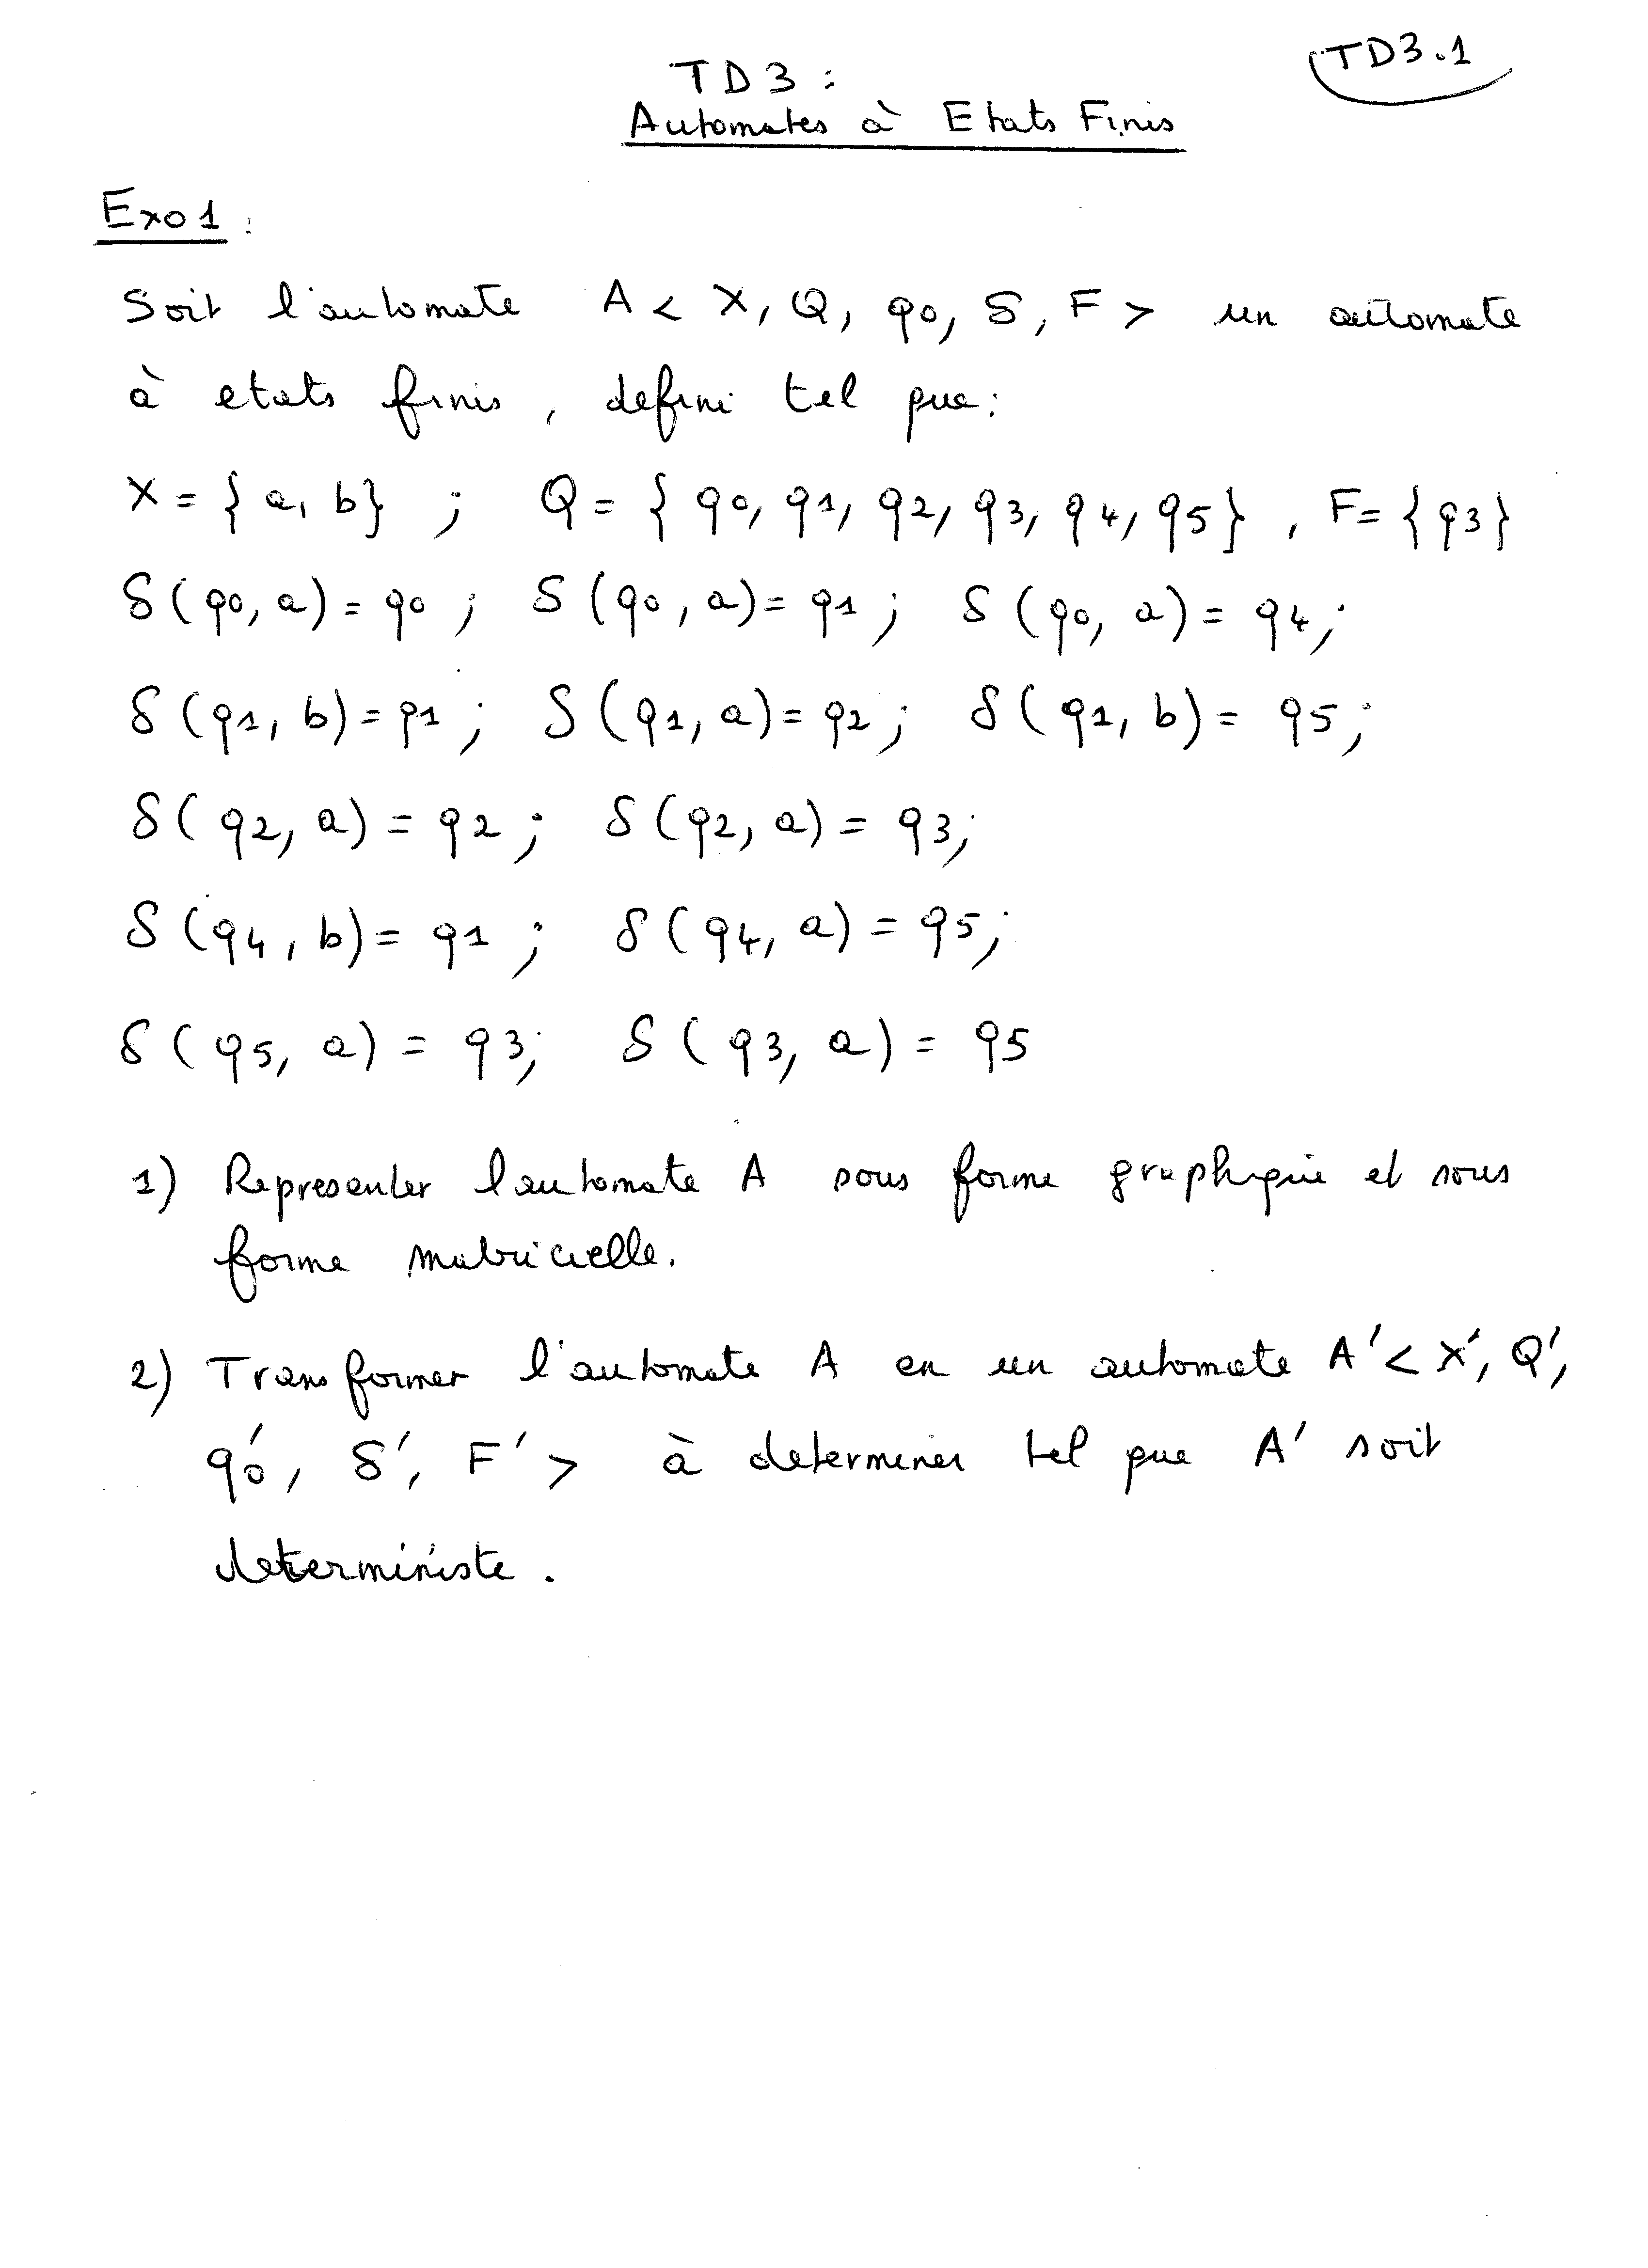 TD3.1
TD3 :
Automates à Etats Finis
Exo1 :
Soit l'automate A < X, Q, q0, δ, F > un automate
à etats finis, defini tel que :
X = { a, b } ; Q = { q0, q1, q2, q3, q4, q5 } , F = { q3 }
δ(q0, a) = q0 ; δ(q0, a) = q1 ; δ(q0, a) = q4 ;
δ(q1, b) = q1 ; δ(q1, a) = q2 ; δ(q1, b) = q5 ;
δ(q2, a) = q2 ; δ(q2, a) = q3 ;
δ(q4, b) = q1 ; δ(q4, a) = q5 ;
δ(q5, a) = q3 ; δ(q3, a) = q5
1) Representer l'automate A sous forme graphique et sous
forme matricielle.
2) Transformer l'automate A en un automate A' < X', Q',
q'0, δ', F' > à determiner tel que A' soit
deterministe.